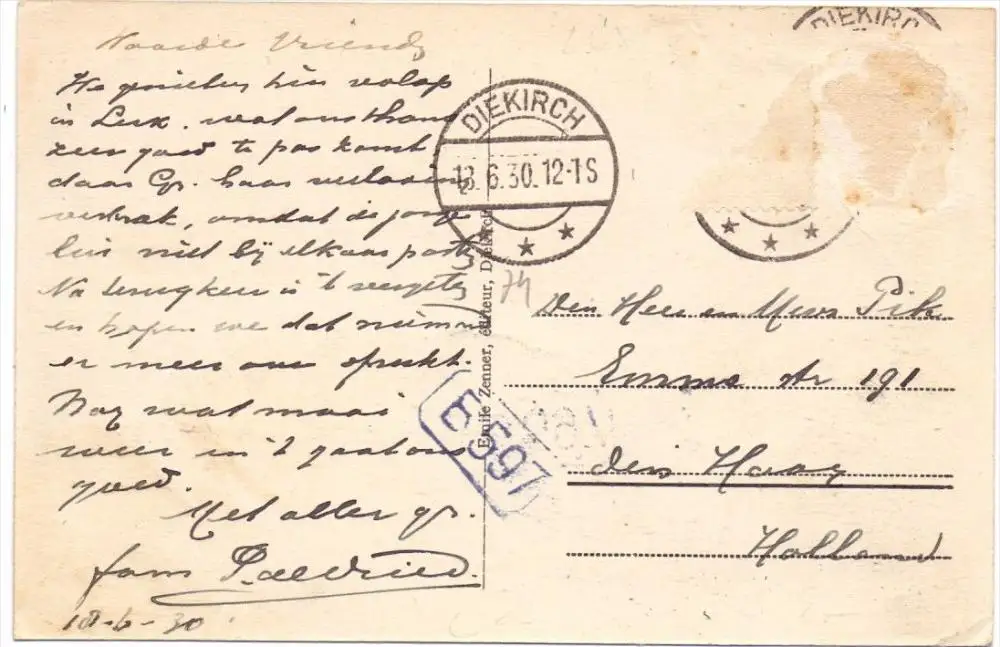 Waarde Vriend
We genieten hier volop
in Lux. wat ons thans
zeer goed te pas komt,
daar Gr. haar verloving
verbrak, omdat de jonge
lui niet bij elkaar pasten
Na terugkeer is 't vergeten
en hopen we dat niemand
er meer over spreekt.
Nog wat mooi
weer en 't gaat ons
goed.
Met aller gr.
fam
18-6-30
Emile Zenner, éditeur, Diekirch
DIEKIRCH
18.6.30.12-1S
DIEKIRCH
74
B 597
Den Heer en Mevr
Emma str 191
Den Haag
Holland